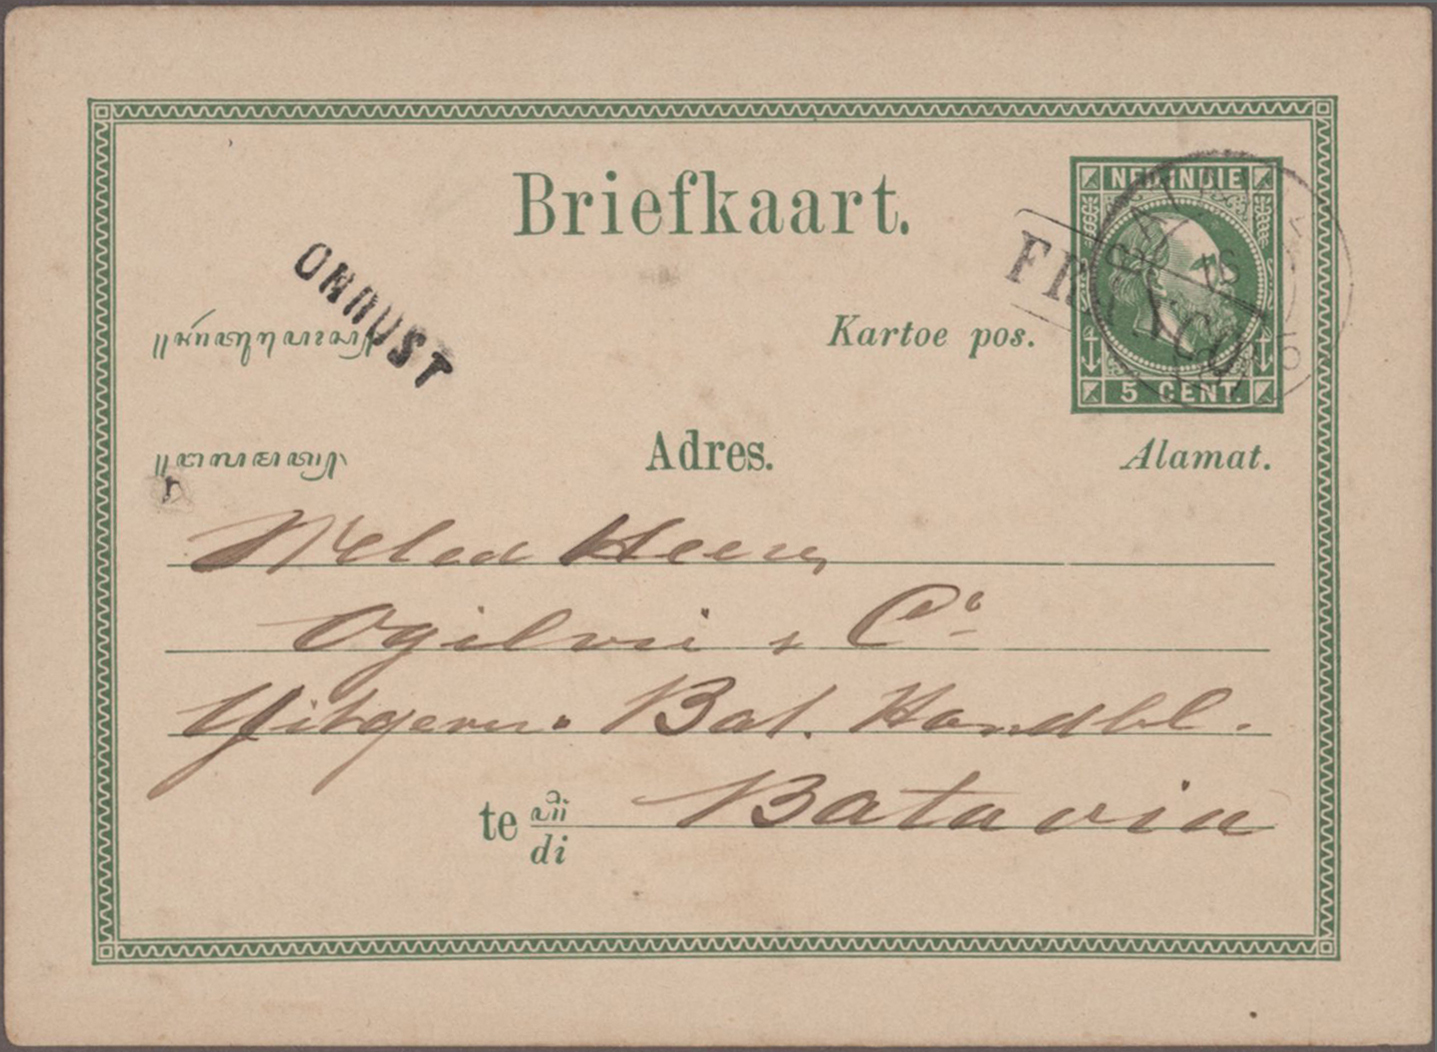 Briefkaart.
NED. INDIE
FRANCO
5 CENT.
ONRUST
Kartoe pos.
Adres.
Alamat.
WelEd Heeren
Ogilvie & Co.
Uitgevers. Bat. Handbl.
te di Batavia